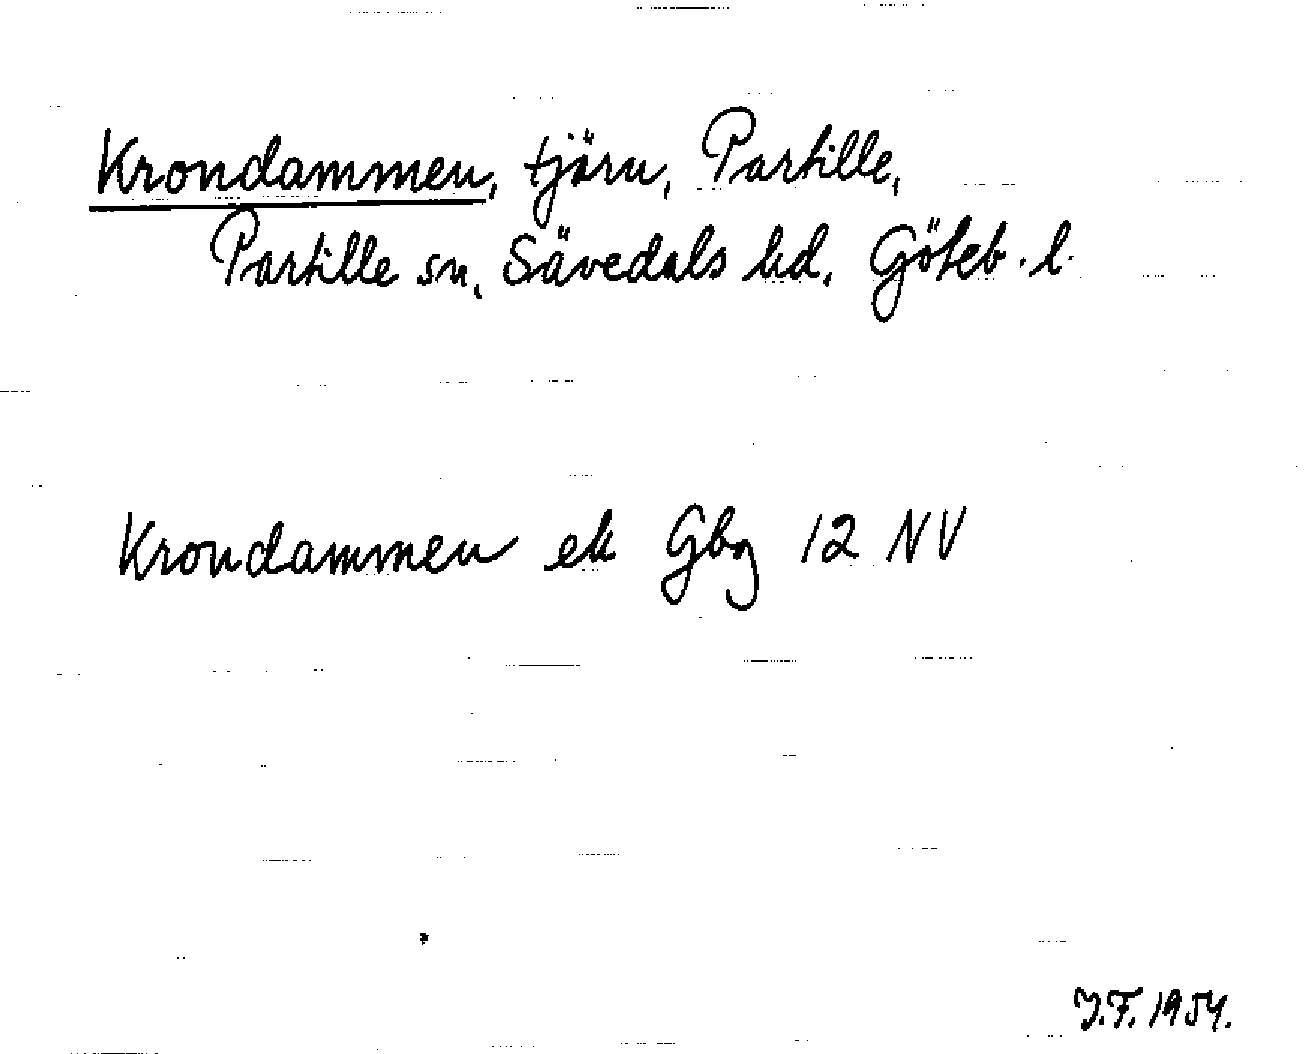 Krondammen, tjärn, Partille,
Partille sn, Sävedals hd, Göteb. l.
Krondammen ek Gbg 12 NV
J.F. 1954.